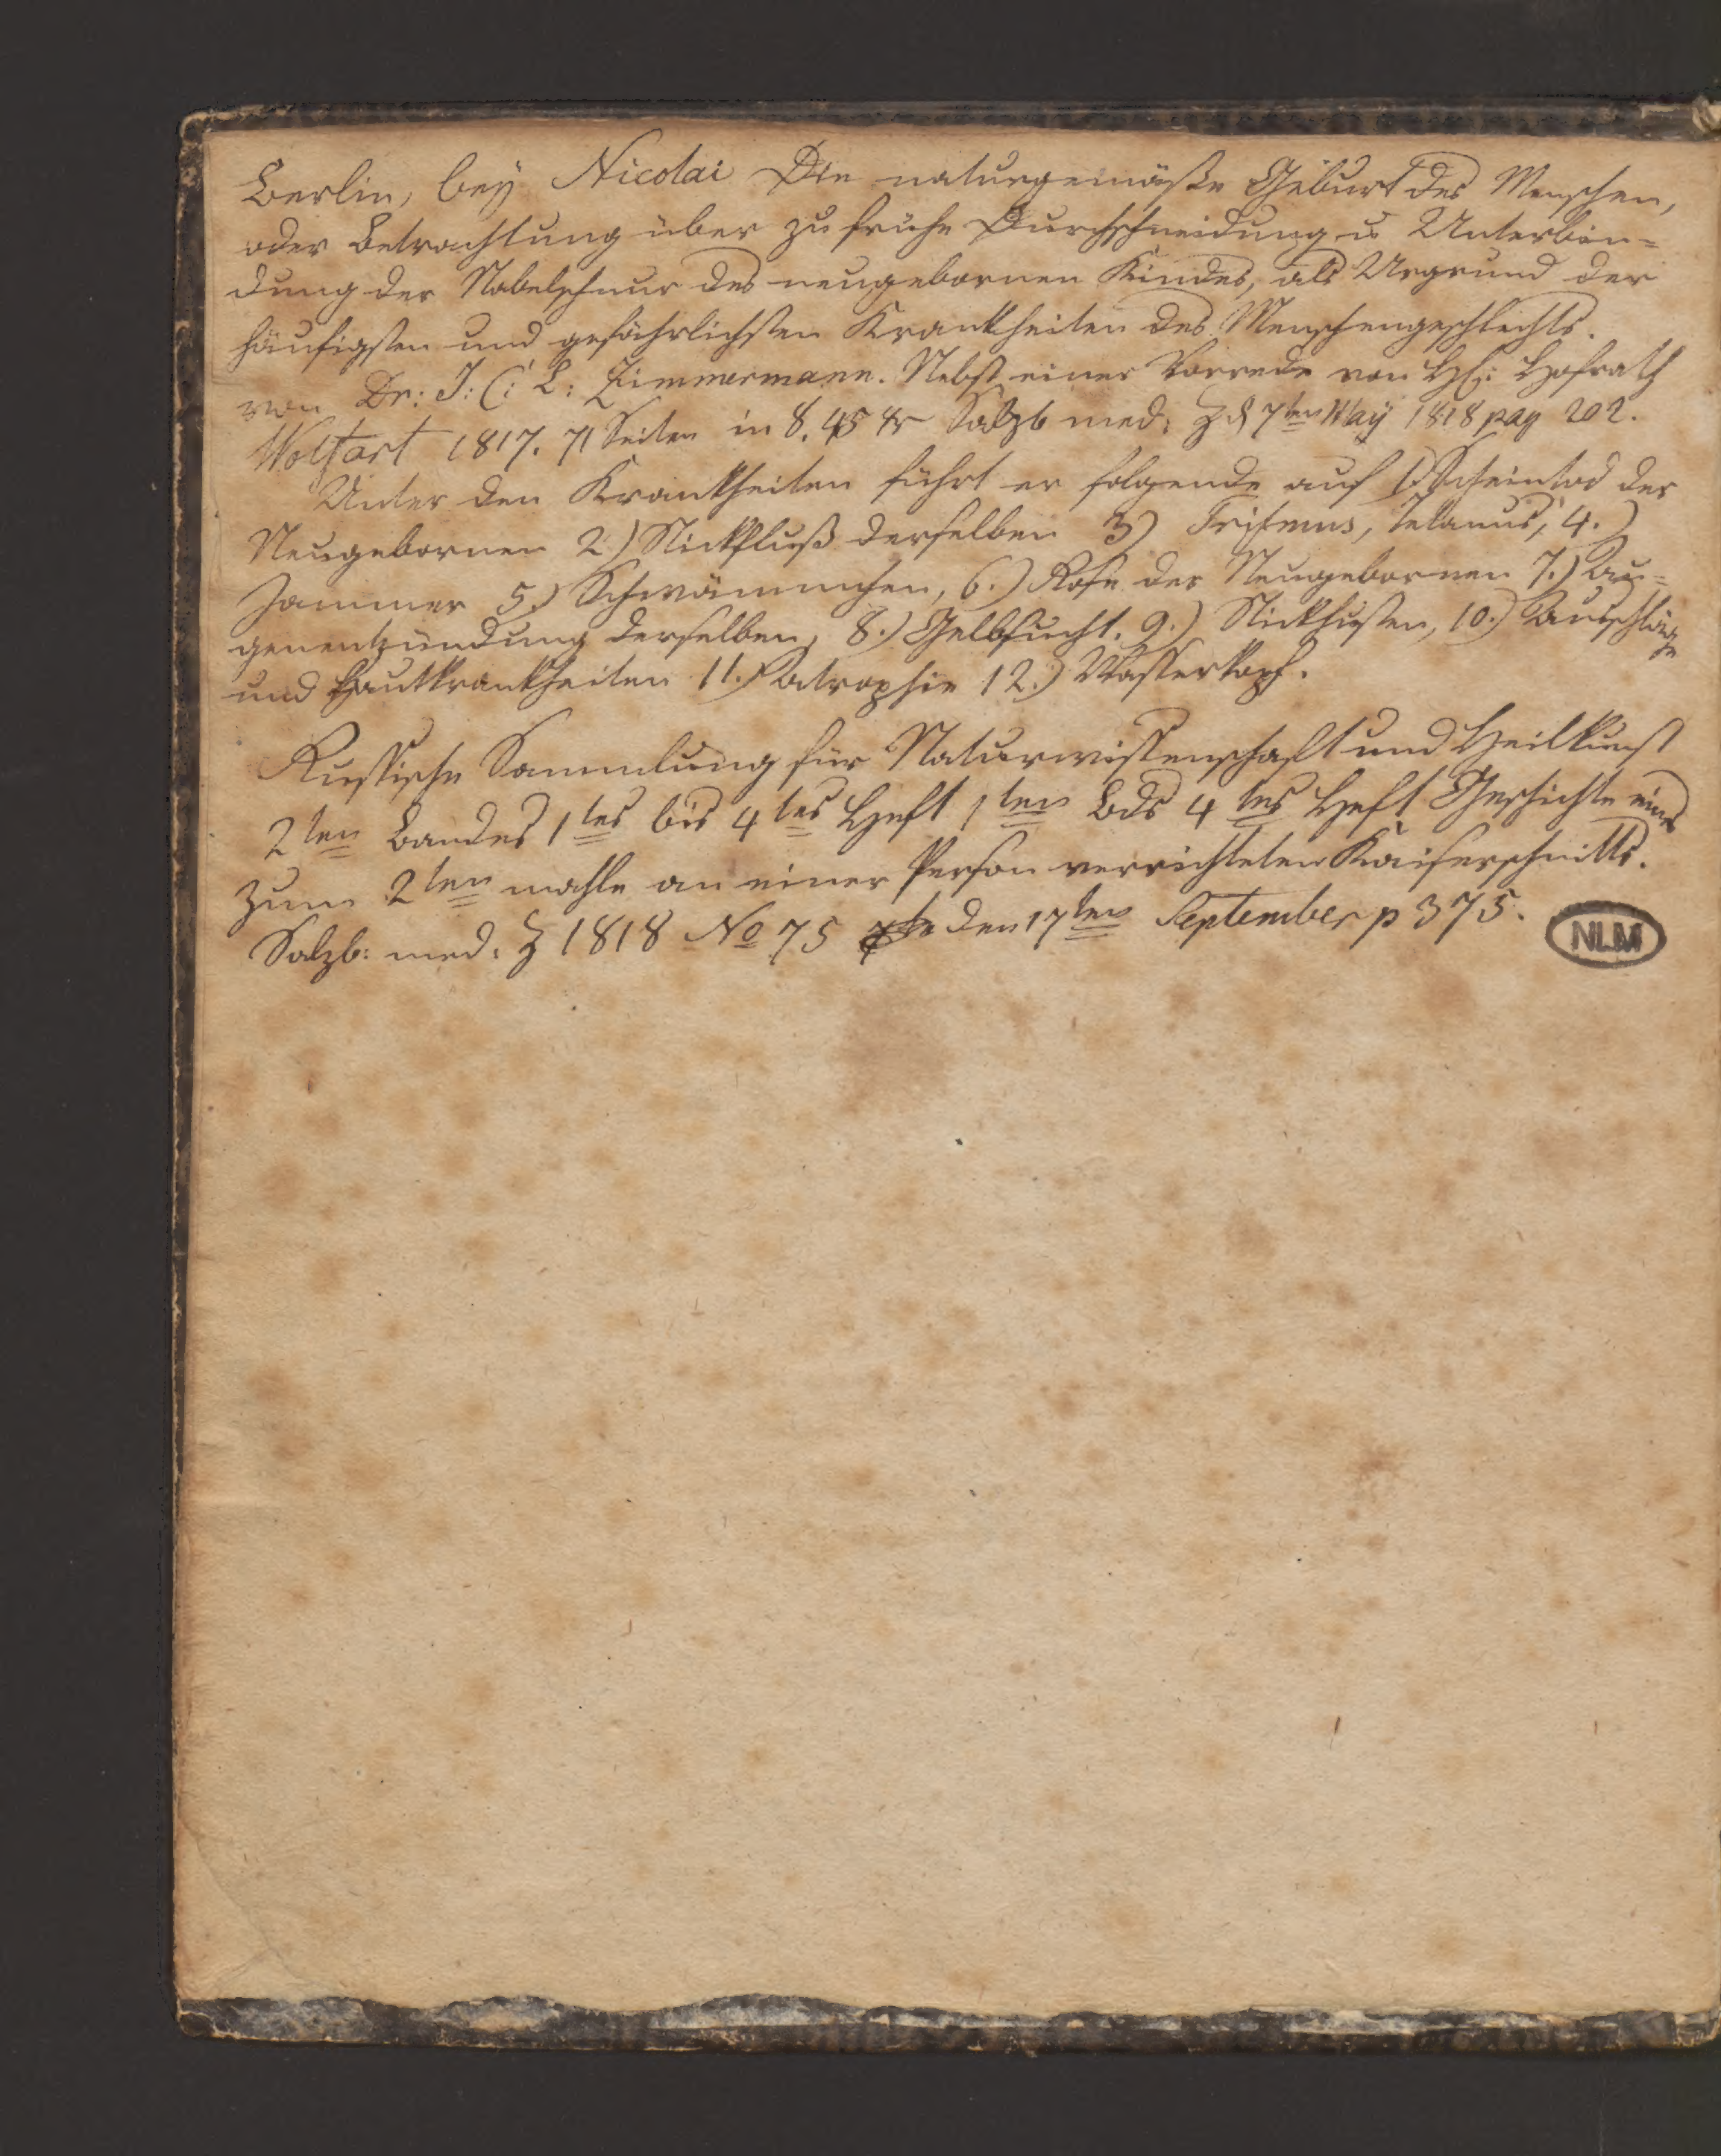 Berlin, bey Nicolai Die naturgemäße Geburt des Menschen,
oder Betrachtung über zu frühe Durchschneidung u Unterbin=
dung der Nabelschnur des neugebornen Kindes, als Urgrund der
häufigsten und gefährlichsten Krankheiten des Menschengeschlechts.
von Dr: J: C: L: Zimmermann. Nebst einer Vorrede von H: Hofrath
Wolfart 1817. 71 Seiten in 8. 45 xr Salzb med: Z d 7ten May 1818 pag 202.
Unter den Krankheiten führt er folgende auf 1.) Scheintod der
Neugebornen 2.) Stickfluß derselben 3) Trismus, Tetanus, 4.)
Jammer 5.) Schwämmchen, 6.) Rose der Neugebornen 7.) Au=
genentzündung derselben, 8.) Gelbsucht. 9.) Stickhusten, 10.) Ausschläge
und Hautkrankheiten 11.) Atrophie 12.) Wasserkopf.
Russische Sammlung für Naturwissenschaft und Heilkunst
2ten Bandes 1tes bis 4tes Heft 1ten Bds 4tes Heft Geschichte eines
zum 2ten mahle an einer Person verrichteten Kaiserschnitts.
Salzb: med: Z 1818 No 75 den 17ten September p 375.
NLM